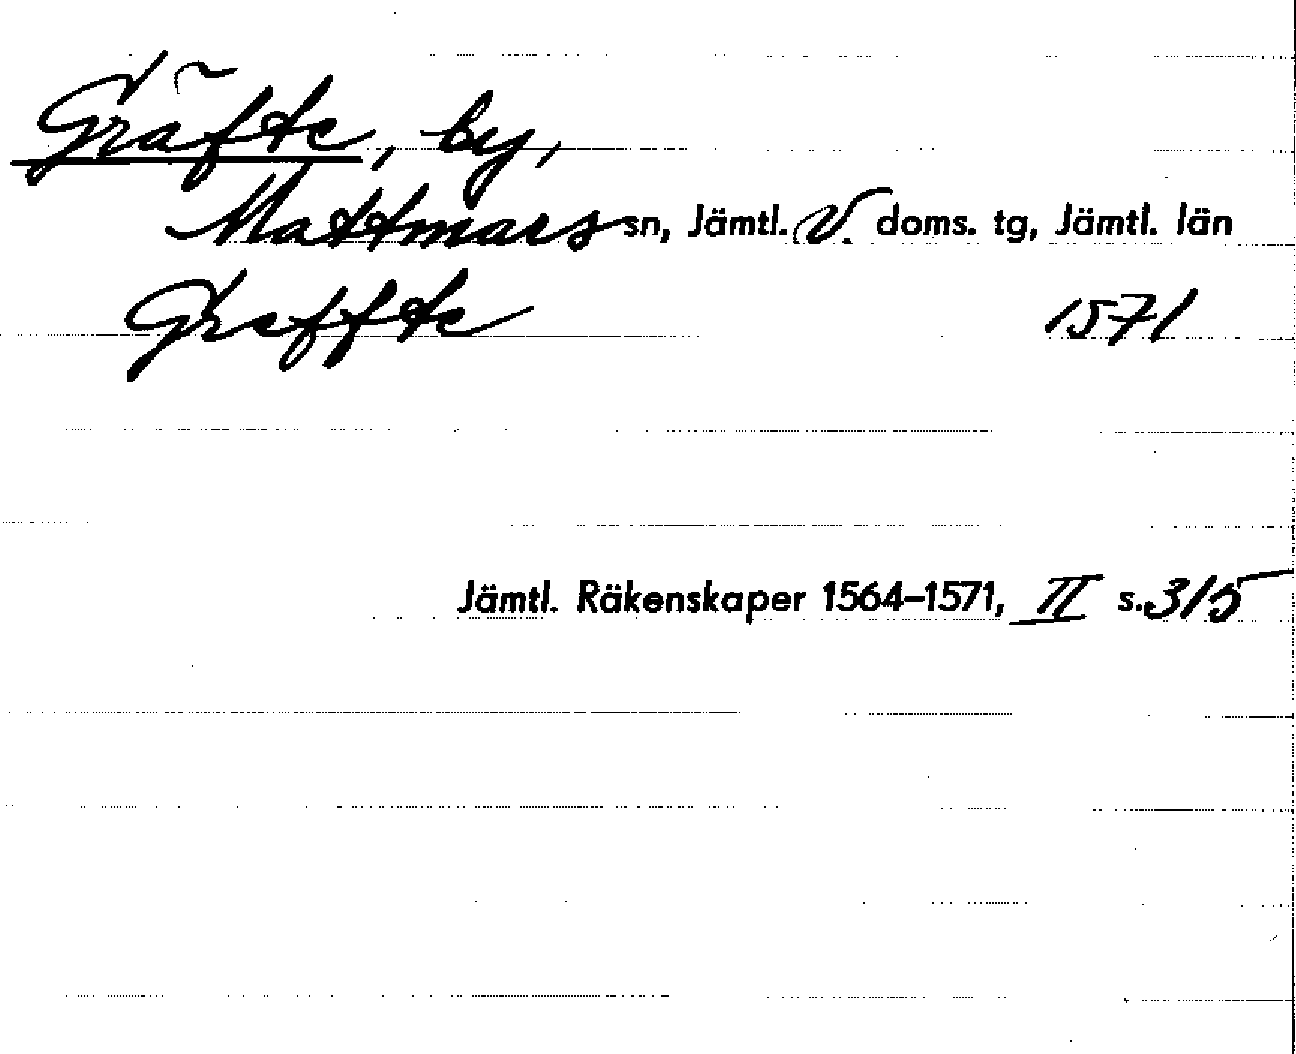 Gräfte, by,
Mattmars sn, Jämtl. V. doms. tg, Jämtl. län
Greffte 1571
Jämtl. Räkenskaper 1564–1571, II s. 315